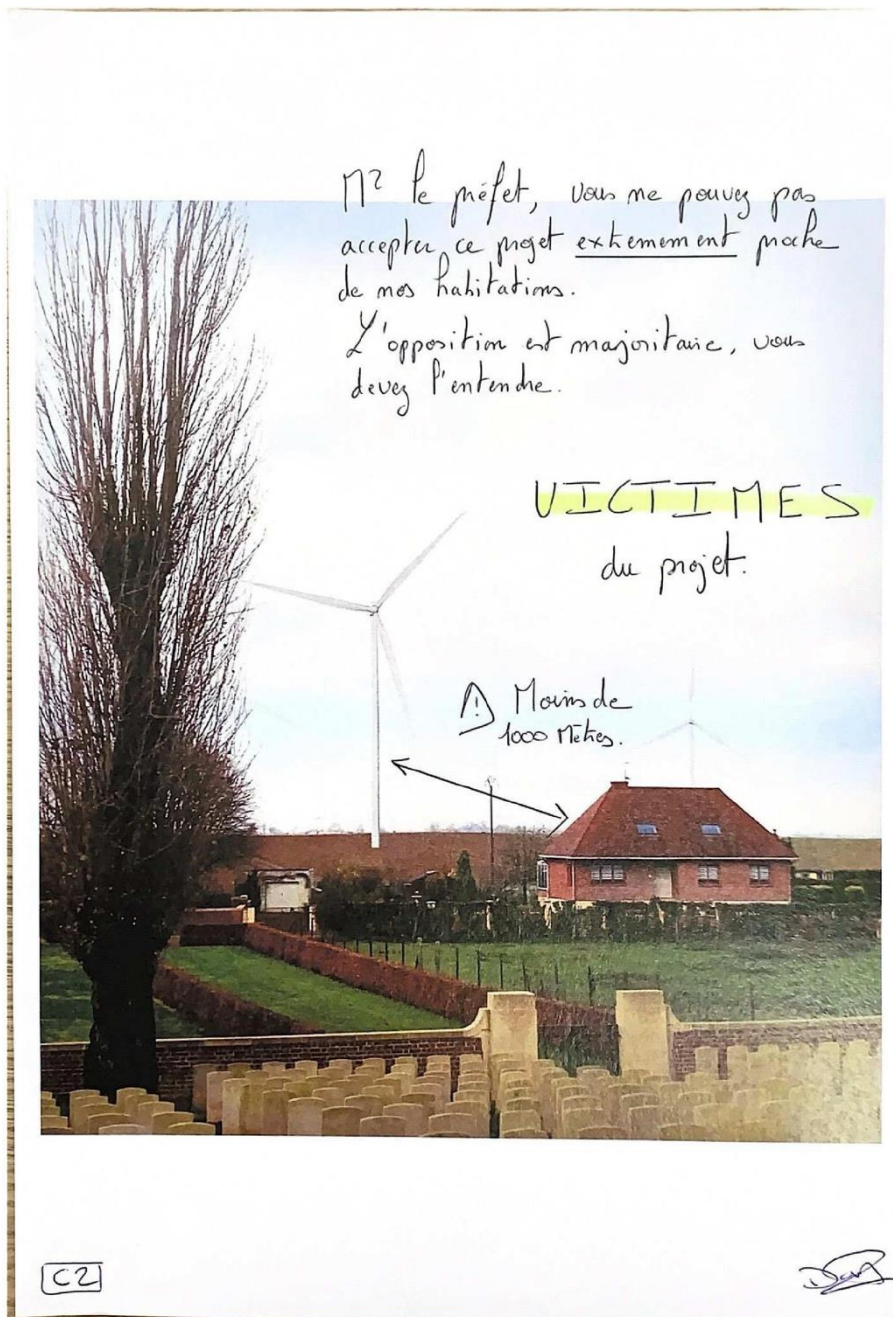 Mr le préfet, vous ne pouvez pas
accepter ce projet extrement proche
de nos habitations.
L'opposition est majoritaire, vous
devez l'entendre.
VICTIMES
du projet.
! Moins de
1000 Mètres.
C2